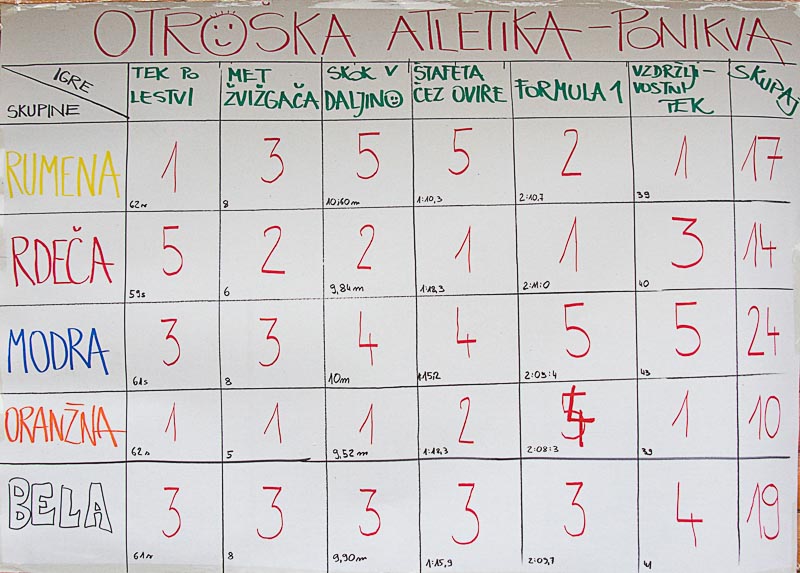 OTROŠKA ATLETIKA - PONIKVA
IGRE
SKUPINE
TEK PO LESTVI
MET ŽVIŽGAČA
SKOK V DALJINO
ŠTAFETA ČEZ OVIRE
FORMULA 1
VZDRŽLJI-
VOSTNI
TEK
SKUPAJ
RUMENA 1 3 5 5 2 1 17
62s 8 10,60m 1:10,3 2:10,7 39
RDEČA 5 2 2 1 1 3 14
59s 6 9,84m 1:18,3 2:11:0 40
MODRA 3 3 4 4 5 5 24
61s 8 10m 1:15,2 2:03:4 43
ORANŽNA 1 1 1 2 4 1 10
62s 5 9,52m 1:18,3 2:08:3 39
BELA 3 3 3 3 3 4 19
61s 8 9,90m 1:15,9 2:09,7 41